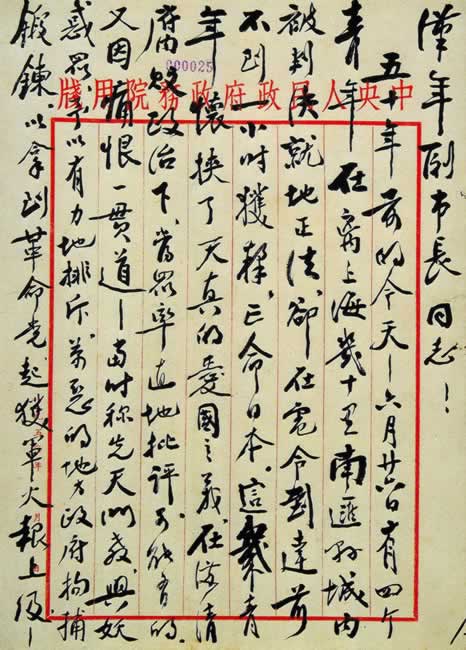 000025
中央人民政府政務院用牋
漢年副市長同志！
五十年前的今天—六月廿六日有四个
青年在离上海幾十里南匯县城内
被判决就地正法,卻在電令到達前
不到一小时獲釋,亡命日本。這羣青
年懷挟了天真的愛國主義,在满清
腐敗政治下,當眾率直地批评,可能有的
又因痛恨一貫道—当时称先天门教,與妖
惑眾,予以有力地排斥,萬惡的地方政府拘捕
鍛鍊,以拿到革命党起獲軍火報上级—